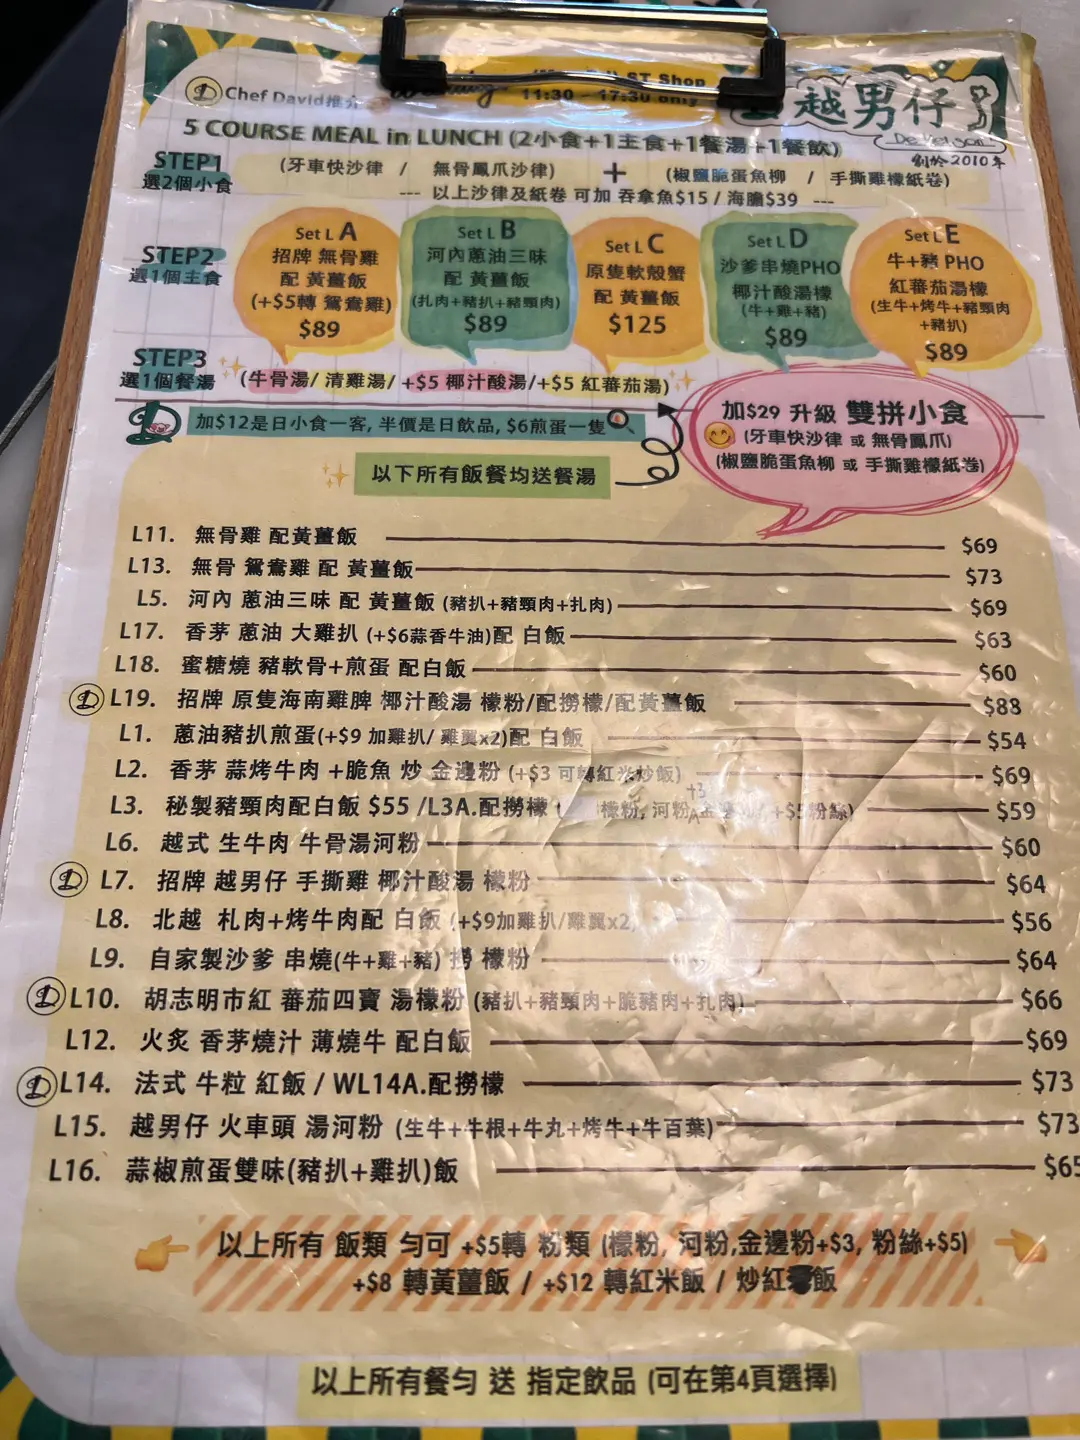 ST Shop
Chef David推介
11:30 - 17:30 only
越男仔
De Viet Son
創於2010年
5 COURSE MEAL in LUNCH (2小食+1主食+1餐湯+1餐飲)
STEP1
選2個小食
(牙車快沙律 / 無骨鳳爪沙律) + (椒鹽脆蛋魚柳 / 手撕雞檬紙卷)
--- 以上沙律及紙卷 可加 吞拿魚$15 / 海膽$39 ---
STEP2
選1個主食
Set L A
招牌 無骨雞
配 黃薑飯
(+$5轉 鴛鴦雞)
$89
Set L B
河內蔥油三味
配 黃薑飯
(扎肉+豬扒+豬頸肉)
$89
Set L C
原隻軟殼蟹
配 黃薑飯
$125
Set L D
沙爹串燒PHO
椰汁酸湯檬
(牛+雞+豬)
$89
Set L E
牛+豬 PHO
紅蕃茄湯檬
(生牛+烤牛+豬頸肉
+豬扒)
$89
STEP3
選1個餐湯
(牛骨湯/ 清雞湯/ +$5 椰汁酸湯/+$5 紅蕃茄湯)
加$12是日小食一客, 半價是日飲品, $6煎蛋一隻
加$29 升級 雙拼小食
(牙車快沙律 或 無骨鳳爪)
(椒鹽脆蛋魚柳 或 手撕雞檬紙卷)
以下所有飯餐均送餐湯
L11. 無骨雞 配黃薑飯 $69
L13. 無骨 鴛鴦雞 配 黃薑飯 $73
L5. 河內 蔥油三味 配 黃薑飯 (豬扒+豬頸肉+扎肉) $69
L17. 香茅 蔥油 大雞扒 (+$6蒜香牛油)配 白飯 $63
L18. 蜜糖燒 豬軟骨+煎蛋 配白飯 $60
L19. 招牌 原隻海南雞脾 椰汁酸湯 檬粉/配撈檬/配黃薑飯 $88
L1. 蔥油豬扒煎蛋(+$9 加雞扒/ 雞翼x2)配 白飯 $54
L2. 香茅 蒜烤牛肉 +脆魚 炒 金邊粉 (+$3 可轉紅米炒飯) $69
L3. 秘製豬頸肉配白飯 $55 /L3A.配撈檬 ( 檬粉, 河粉, 金邊 +3 / +$5粉絲) $59
L6. 越式 生牛肉 牛骨湯河粉 $60
L7. 招牌 越男仔 手撕雞 椰汁酸湯 檬粉 $64
L8. 北越 札肉+烤牛肉配 白飯 (+$9加雞扒/雞翼x2) $56
L9. 自家製沙爹 串燒(牛+雞+豬) 撈 檬粉 $64
L10. 胡志明市紅 蕃茄四寶 湯檬粉 (豬扒+豬頸肉+脆豬肉+扎肉) $66
L12. 火炙 香茅燒汁 薄燒牛 配白飯 $69
L14. 法式 牛粒 紅飯 / WL14A.配撈檬 $73
L15. 越男仔 火車頭 湯河粉 (生牛+牛根+牛丸+烤牛+牛百葉) $73
L16. 蒜椒煎蛋雙味(豬扒+雞扒)飯 $65
以上所有 飯類 勻可 +$5轉 粉類 (檬粉, 河粉,金邊粉+$3, 粉絲+$5)
+$8 轉黃薑飯 / +$12 轉紅米飯 / 炒紅飯
以上所有餐勻 送 指定飲品 (可在第4頁選擇)